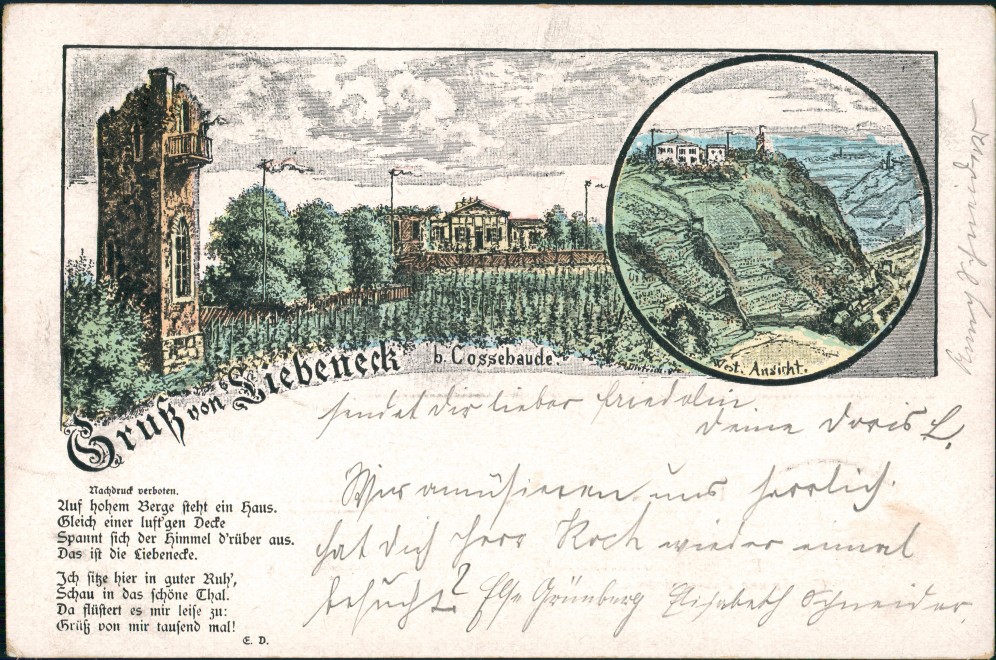 Gruß von Liebeneck b. Cossebaude.
West. Ansicht.
sendet dir lieber Friedolin
deine Doris L.
Wir amüsieren uns herrlich.
hat dich Herr Koch wieder einmal
besucht? Else Grünberg Elisabeth Schneider
Nachdruck verboten.
Auf hohem Berge steht ein Haus.
Gleich einer luft'gen Decke
Spannt sich der Himmel d'rüber aus.
Das ist die Liebenecke.
Ich sitze hier in guter Ruh',
Schau in das schöne Thal.
Da flüstert es mir leise zu:
Grüß von mir tausend mal!
E. D.